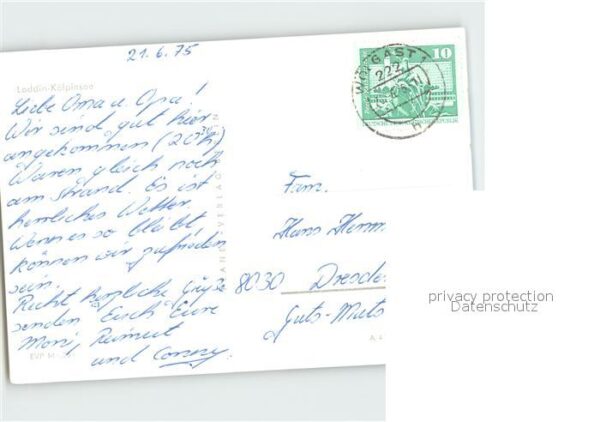 21.6.75
Loddin-Kölpinsee
Liebe Oma u. Opa!
Wir sind gut hier
angekommen (20h)
Waren gleich noch
am Strand. Es ist
herrliches Wetter.
Wenn es so bleibt
können wir zufrieden
sein.
Recht herzliche Grüße
senden Euch Eure
Moni, Reimut
und Conny.
EVP M
WOLGAST 1
222
10
Fam.
Hans Herm
8030 Dresde
Guts-Muts
privacy protection
Datenschutz